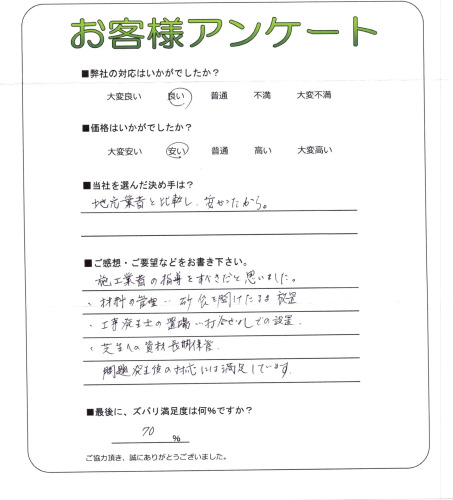 お客様アンケート
■弊社の対応はいかがでしたか？
大変良い 良い 普通 不満 大変不満
■価格はいかがでしたか？
大変安い 安い 普通 高い 大変高い
■当社を選んだ決め手は？
地元業者と比較し、安かったから。
■ご感想・ご要望などをお書き下さい。
施工業者の指導をすべきだと思いました。
・材料の管理‥砂袋を開けたまま放置
・工事発生土の置場‥打合せなしでの設置
・芝生への資材長期保管
問題発生後の対応には満足しています。
■最後に、ズバリ満足度は何％ですか？
70 ％
ご協力頂き、誠にありがとうございました。